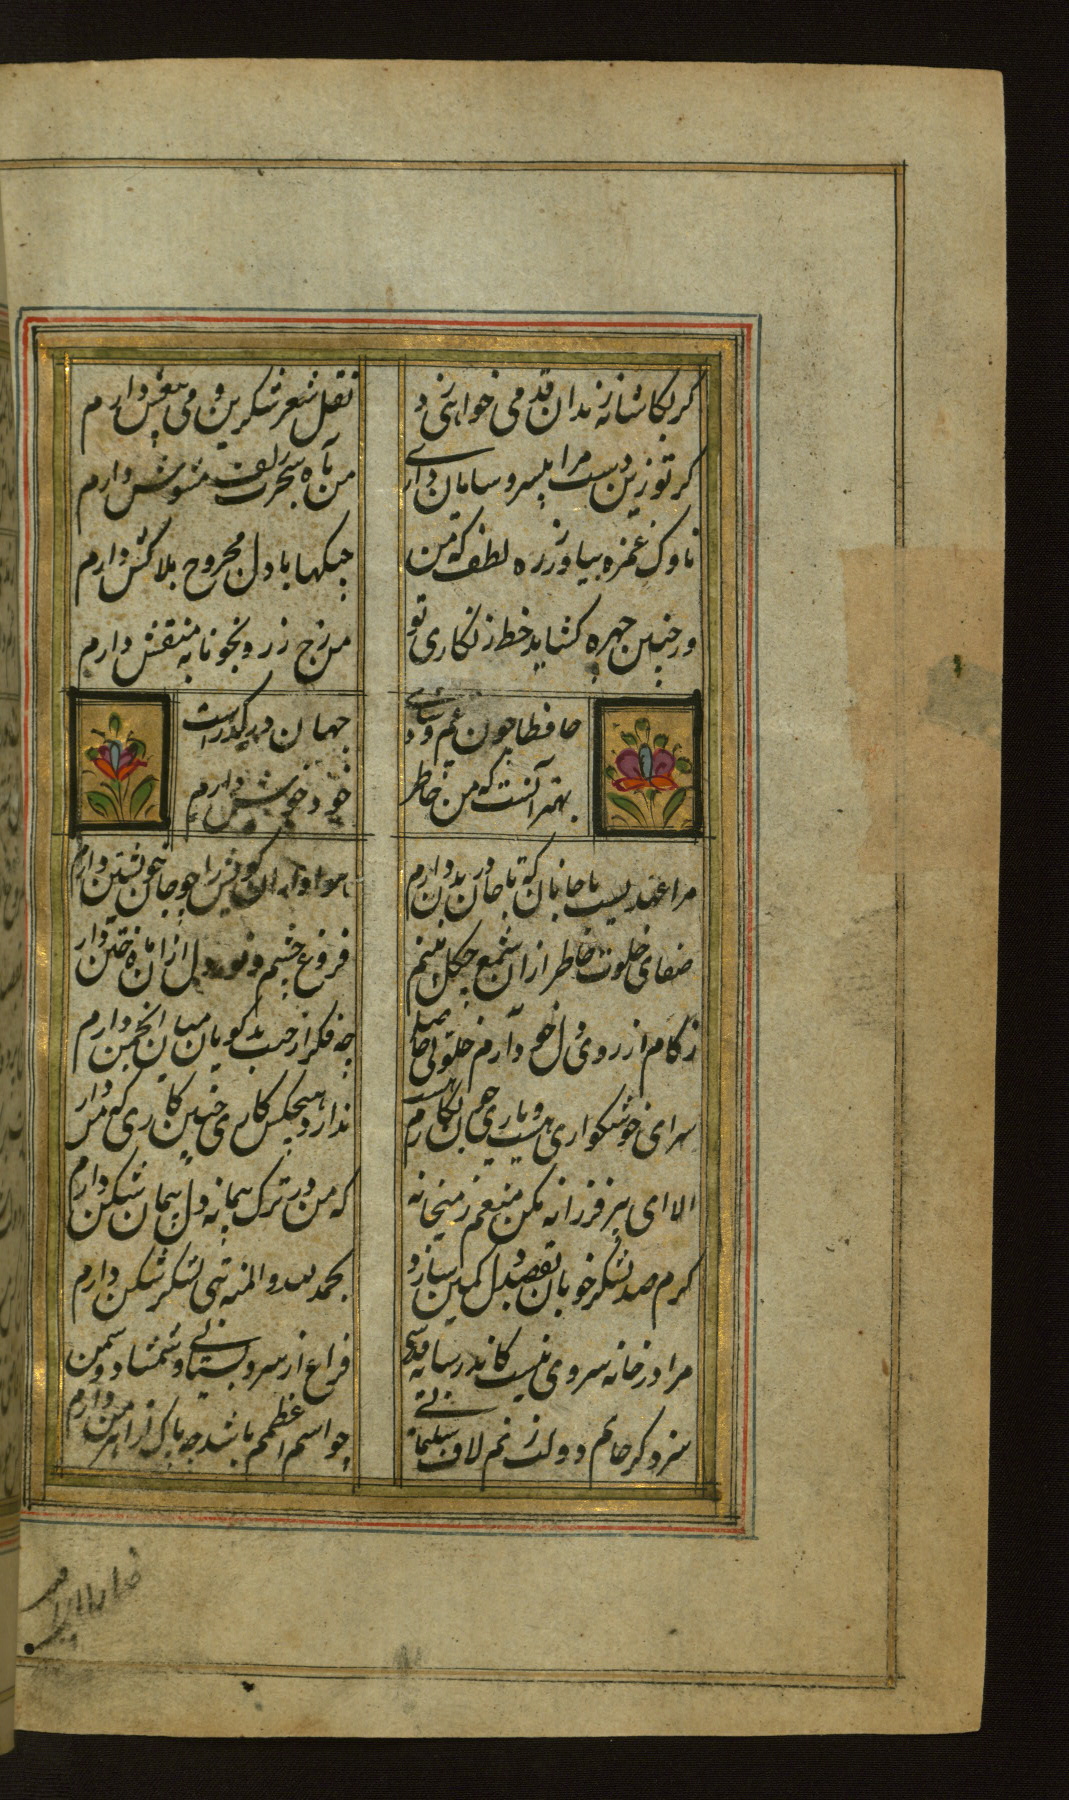 کر بکاشانه رندان قدمی خواهی زد
نقل شعر شکرین و می بیغش دارم
کر تو زین دست مرا بیسر و سامان داری
من بآه سحرت زلف مشوش دارم
ناوک غمزه بیاور زره لطف که من
جنکها با دل مجروح بلاکش دارم
ور چنین چهره کشاید خط زنکاری تو
من رخ زرد بخونابه منقش دارم
حافظا چون غم و شادی
جهان در کذرست
بهتر آنست که من خاطر
خود خوش دارم
مرا عهدیست با جانان که تا جان در بدن دارم
هواداران کویش را چو جان خویشتن دارم
صفای خلوت خاطر ازان شمع چکل بینم
فروغ چشم و نور دل ازان ماه ختن دارم
بکام و آرزوی دل چو دارم خلوتی حاصل
چه فکر از خبث بدکویان میان انجمن دارم
سرای خوشکواری هست و یاری
ندارد هیچکس کاری چنین کاری که من دارم
الا ای پیر فرزانه مکن منعم ز میخانه
که من در ترک پیمانه دل پیمان شکن دارم
کرم صد لشکر خوبان بقصد دل کمین سازد
بحمد لله و المنه بتی لشکر شکن دارم
مرا در خانه سروی هست کاندر سایه قدش
فراغ از سرو بستانی و شمشاد و سمن
سزد کر خاتم دولت زنم لاف سلیمانی
چو اسم اعظمم باشد چه باک از اهرمن دارم